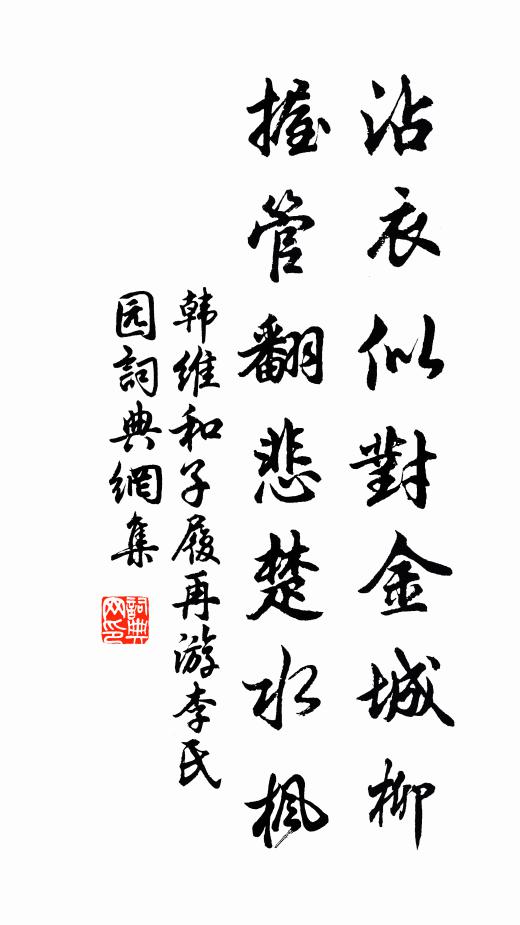 沾衣似對金城柳
握管翻悲楚水楓
韩維和子履再游李氏
园詞典網集
詞典网印